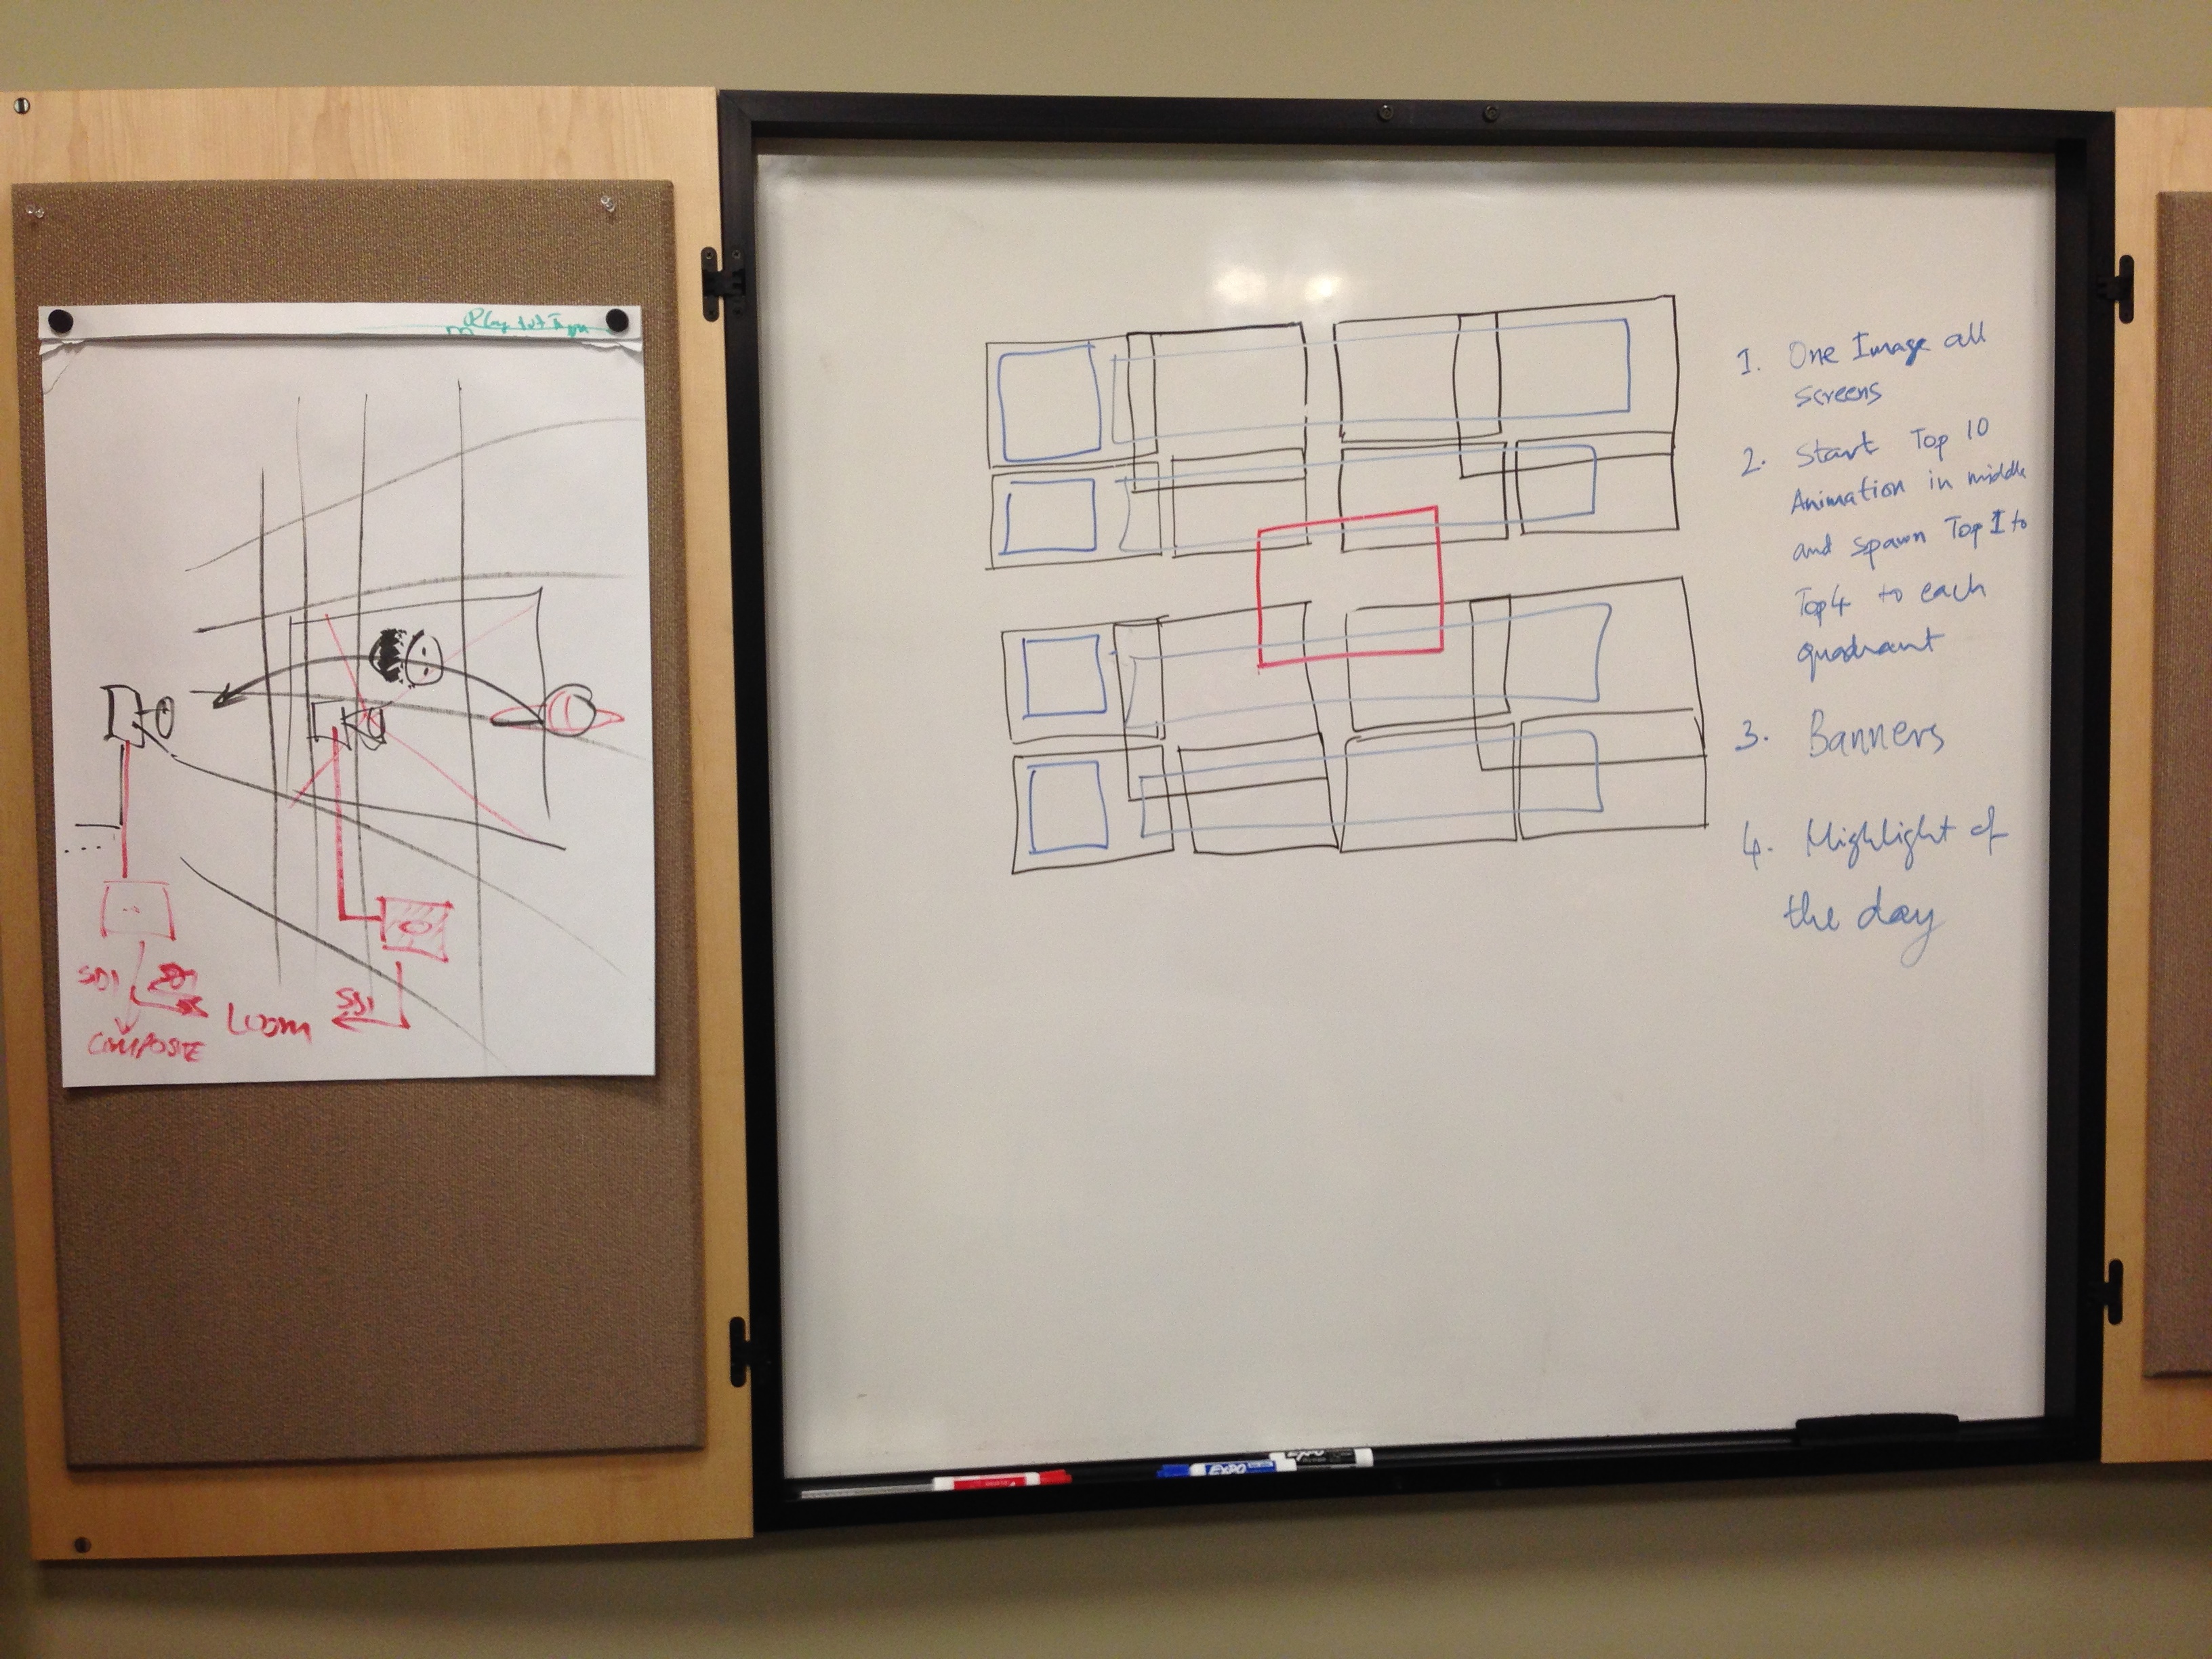 SDI
SDI
COMPOSITE
Loom
SDI
1. One Image all
screens
2. Start Top 10
Animation in middle
and spawn Top 1 to
Top4 to each
quadrant
3. Banners
4. Highlight of
the day
EXPO
EXPO